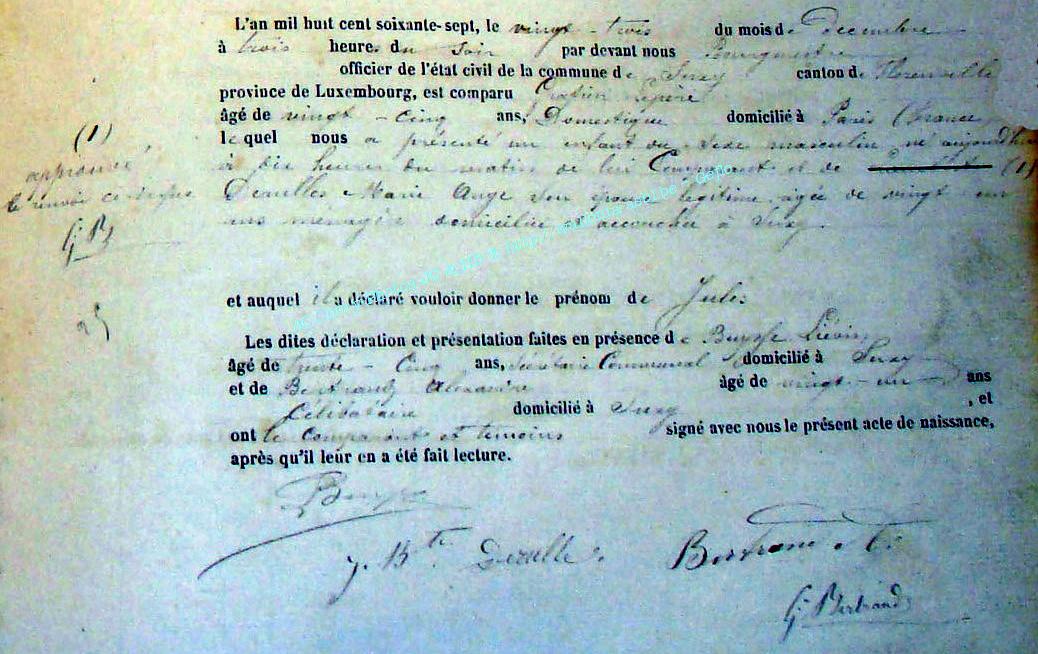 L'an mil huit cent soixante-sept, le vingt-trois du mois de Decembre
à trois heures du soir par devant nous Bourgmestre
officier de l'état civil de la commune de canton de Florenville
province de Luxembourg, est comparu
âgé de vingt-cinq ans, Domestique domicilié à Paris (France
lequel nous a présenté un enfant du sexe masculin né aujourd'hui
à dix heures du matin de lui Comparant et de (1)
(1)
approuvé
le renvoi ci-dessus
G. B
Marie Ange son épouse légitime, agée de vingt un
ans ménagère domiciliée et accouchée à
25
et auquel il a déclaré vouloir donner le prénom de Jules
Les dites déclaration et présentation faites en présence de
âgé de trente-Cinq ans, Sécrétaire Communal domicilié à
et de Bertrand Alexandre âgé de vingt-un ans
Célibataire domicilié à , et
ont le Comparant et témoins signé avec nous le présent acte de naissance,
après qu'il leur en a été fait lecture.
J. Bte Bertrand
G. Bertrand